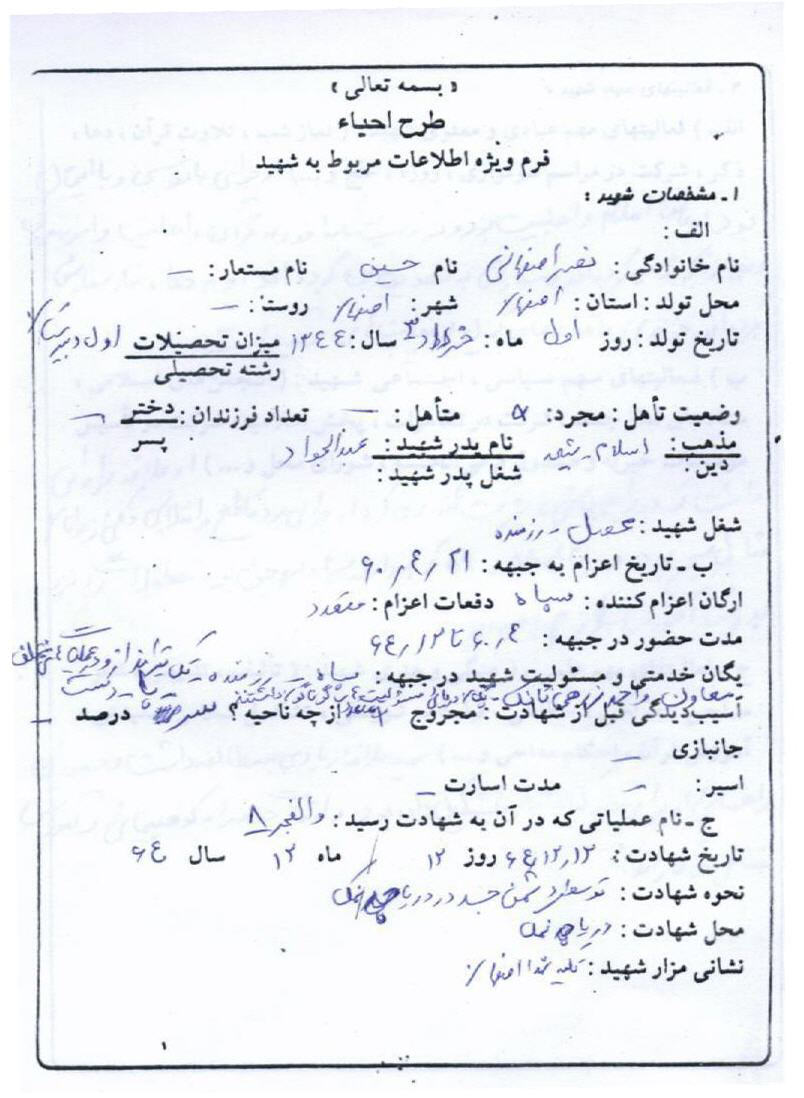 « بسمه تعالی »
طرح احیاء
فرم ویژه اطلاعات مربوط به شهید
۱ ـ مشخصات شهید :
الف :
نام خانوادگی : نصر اصفهانی نام حسین نام مستعار : —
محل تولد : استان : اصفهان شهر : اصفهان روستا : —
تاریخ تولد : روز اول ماه : خرداد ۳ سال : ۱۳۴۴ میزان تحصیلات اول دبیرستان
رشته تحصیلی
وضعیت تأهل : مجرد : متأهل : — تعداد فرزندان : دختر —
پسر
مذهب : اسلام ـ شیعه نام پدر شهید : عبدالجواد
دین شغل پدر شهید :
شغل شهید : محصل ـ رزمنده
ب ـ تاریخ اعزام به جبهه : ۶۰٫۴٫۲۱
ارگان اعزام کننده : سپاه دفعات اعزام : متعدد
مدت حضور در جبهه : ۶۰٫۴ تا ۶۴٫۱۲
یگان خدمتی و مسئولیت شهید در جبهه : سپاه رزمنده تک تیرانداز و در عملیات های مختلف
معاون واحد ضد زرهی تانک
آسیب دیدگی قبل از شهادت : مجروح از چه ناحیه ؟ سر دست درصد —
جانبازی —
اسیر : — مدت اسارت —
ج ـ نام عملیاتی که در آن به شهادت رسید : والفجر ۸
تاریخ شهادت : ۶۴٫۱۲٫۱۲ روز ۱۲ ماه ۱۲ سال ۶۴
نحوه شهادت : توسط دشمن جسد در دریاچه نمک
محل شهادت : دریاچه نمک
نشانی مزار شهید : اصفهان
۱